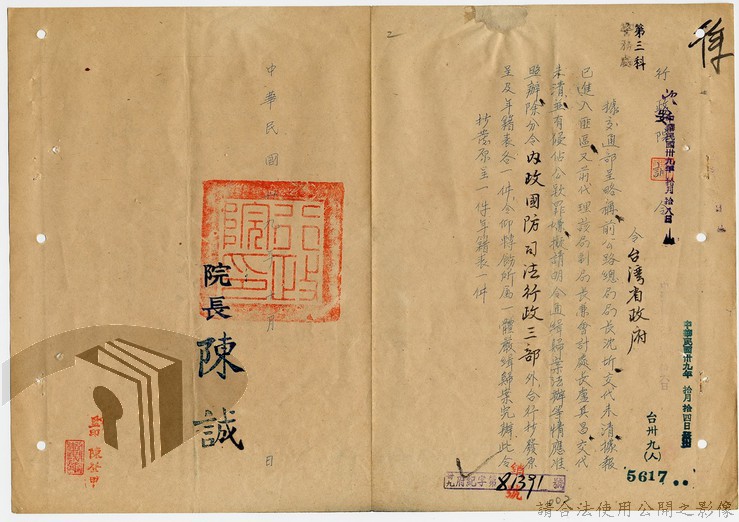 第三科
行政院訓令
中華民國卅九年拾月拾八日
令台灣省政府
據交通部呈略稱前公路總局局長沈圻交代未清據報
已進入匪區又前代理該局副局長兼會計處長盧其昌交代
未清並有侵佔公款罪嫌擬請明令通緝歸案法辦等情應准
照辦除分令內政國防司法行政三部外合行抄發原
呈及年籍表各一件令仰轉飭所屬一體嚴緝歸案究辦此令
抄發原呈一件年籍表一件
中華民國卅九年拾月拾四日發
台卅九(人)
5617
中華民國
月
日
行政院印
院長陳誠
監印 陳登甲
府紀字第81391號
請合法使用公開之影像